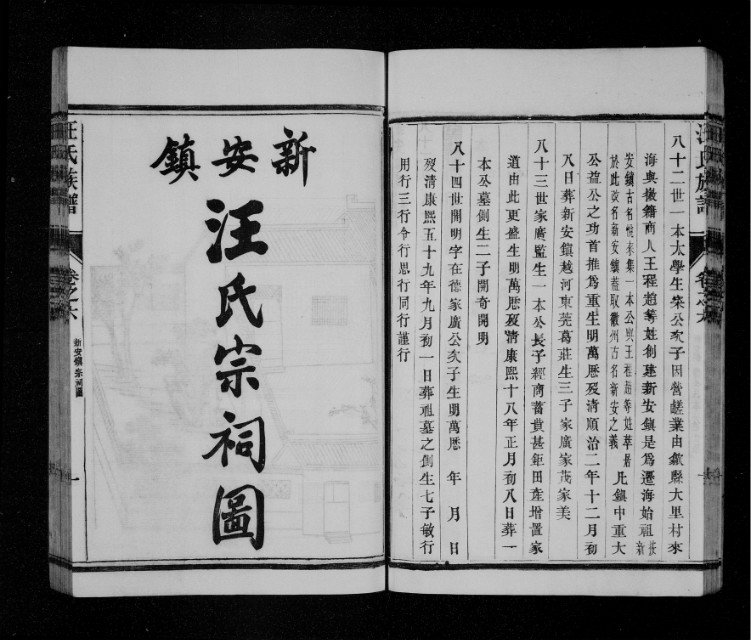 八十二世一本太學生榮公次子因營鹺業由歙縣大里村來
海與徽籍商人王程趙等姓創建新安鎮是為遷海始祖按新
安鎮古名悅來集一本公與王程趙等姓草居
於此後名新安鎮蓋取徽州古名新安之義
凡鎮中重大
公益公之功首推為重生明萬曆歿清順治二年十二月初
八日葬新安鎮越河東莞葛莊生三子家廣家茂家美
八十三世家廣監生一本公長子經商蓄貲甚鉅田產增置家
道由此更盛生明萬曆歿清康熙十八年正月初八日葬一
本公墓側生二子開奇開明
八十四世開明字在德家廣公次子生明萬曆 年 月 日
歿清康熙五十九年九月初一日葬祖墓之側生七子敏行
用行三行令行思行同行謹行
新安鎮
汪氏宗祠圖
汪氏族譜
卷之六
新安鎮宗祠圖
一
汪氏族譜
卷之六